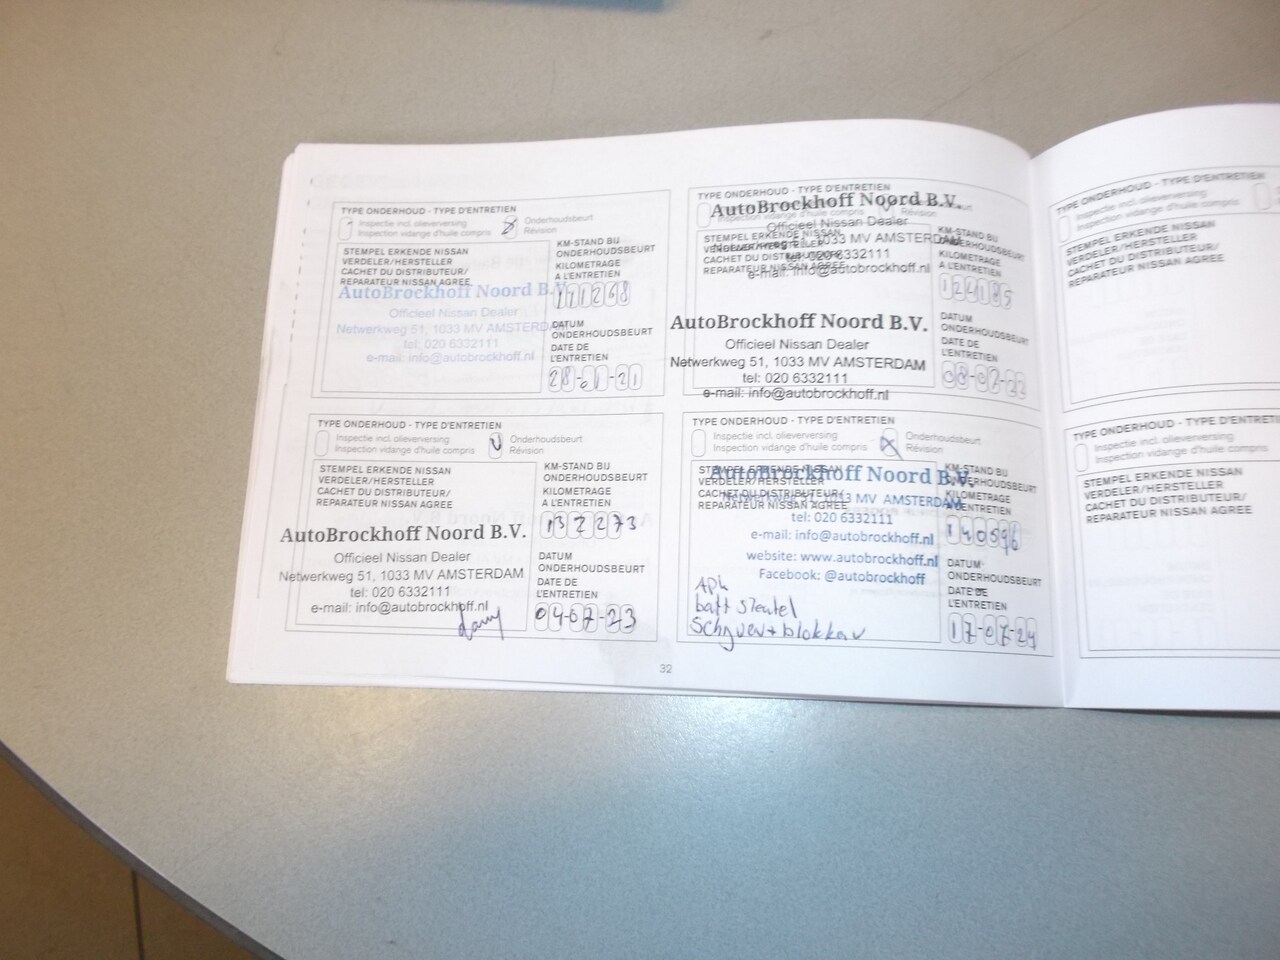 TYPE ONDERHOUD - TYPE D'ENTRETIEN
Inspectie incl. olieverversing
Inspection vidange d'huile compris
Onderhoudsbeurt
Révision
STEMPEL ERKENDE NISSAN
VERDELER/HERSTELLER
CACHET DU DISTRIBUTEUR/
REPARATEUR NISSAN AGREE
AutoBrockhoff Noord B.V.
Officieel Nissan Dealer
Netwerkweg 51, 1033 MV AMSTERDAM
tel: 020 6332111
e-mail: info@autobrockhoff.nl
KM-STAND BIJ
ONDERHOUDSBEURT
KILOMETRAGE
A L'ENTRETIEN
111268
DATUM
ONDERHOUDSBEURT
DATE DE
L'ENTRETIEN
28-01-21
TYPE ONDERHOUD - TYPE D'ENTRETIEN
AutoBrockhoff Noord B.V.
Inspection vidange d'huile compris
Révision
Officieel Nissan Dealer
STEMPEL ERKENDE NISSAN
Netwerkweg 51, 1033 MV AMSTERDAM
VERDELER/HERSTELLER
CACHET DU DISTRIBUTEUR/
tel: 020 6332111
REPARATEUR NISSAN AGREE
e-mail: info@autobrockhoff.nl
AutoBrockhoff Noord B.V.
Officieel Nissan Dealer
Netwerkweg 51, 1033 MV AMSTERDAM
tel: 020 6332111
e-mail: info@autobrockhoff.nl
KM-STAND BIJ
ONDERHOUDSBEURT
KILOMETRAGE
A L'ENTRETIEN
124185
DATUM
ONDERHOUDSBEURT
DATE DE
L'ENTRETIEN
08-07-22
TYPE ONDERHOUD - TYPE D'ENTRETIEN
Inspectie incl. olieverversing
Inspection vidange d'huile compris
Onderhoudsbeurt
Révision
STEMPEL ERKENDE NISSAN
VERDELER/HERSTELLER
CACHET DU DISTRIBUTEUR/
REPARATEUR NISSAN AGREE
AutoBrockhoff Noord B.V.
Officieel Nissan Dealer
Netwerkweg 51, 1033 MV AMSTERDAM
tel: 020 6332111
e-mail: info@autobrockhoff.nl
KM-STAND BIJ
ONDERHOUDSBEURT
KILOMETRAGE
A L'ENTRETIEN
132273
DATUM
ONDERHOUDSBEURT
DATE DE
L'ENTRETIEN
04-07-23
TYPE ONDERHOUD - TYPE D'ENTRETIEN
Inspectie incl. olieverversing
Inspection vidange d'huile compris
Onderhoudsbeurt
Révision
STEMPEL ERKENDE NISSAN
AutoBrockhoff Noord B.V.
VERDELER/HERSTELLER
CACHET DU DISTRIBUTEUR/
Netwerkweg 51, 1033 MV AMSTERDAM
REPARATEUR NISSAN AGREE
tel: 020 6332111
e-mail: info@autobrockhoff.nl
website: www.autobrockhoff.nl
Facebook: @autobrockhoff
APK
batt sleutel
Schijven + blokken
KM-STAND BIJ
ONDERHOUDSBEURT
KILOMETRAGE
A L'ENTRETIEN
140596
DATUM
ONDERHOUDSBEURT
DATE DE
L'ENTRETIEN
17-07-24
32
TYPE ONDERHOUD - TYPE D'ENTRETIEN
Inspectie incl. olieverversing
Inspection vidange d'huile compris
STEMPEL ERKENDE NISSAN
VERDELER/HERSTELLER
CACHET DU DISTRIBUTEUR/
REPARATEUR NISSAN AGREE
TYPE ONDERHOUD - TYPE D'ENTRETI
Inspectie incl. olieverversing
Inspection vidange d'huile compris
STEMPEL ERKENDE NISSAN
VERDELER/HERSTELLER
CACHET DU DISTRIBUTEUR/
REPARATEUR NISSAN AGREE